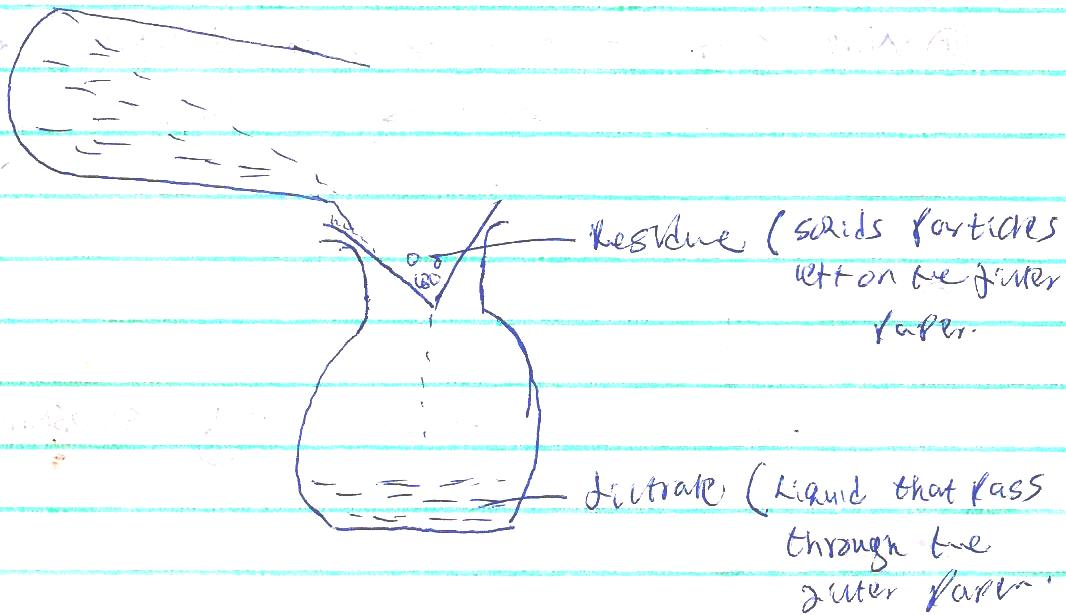 Residue (solids particles
left on the filter
paper.
filtrate (Liquid that pass
through the
filter paper.